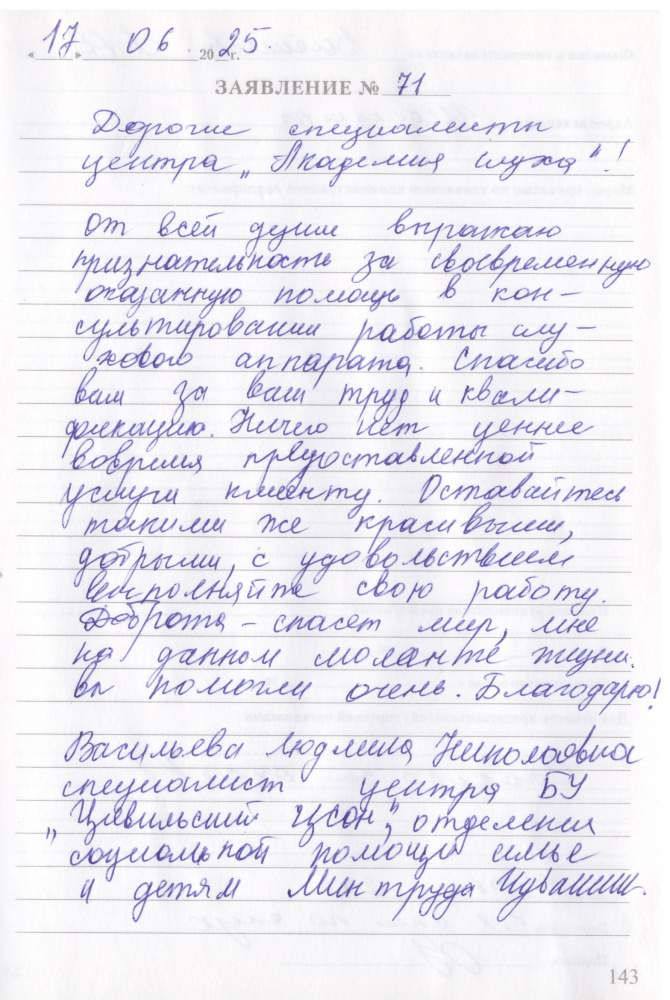 «17» 06 2025г.
ЗАЯВЛЕНИЕ № 71
Дорогие специалисты
центра „Академия слуха"!
От всей души выражаю
признательность за своевременную
оказанную помощь в кон-
сультировании работы слу-
хового аппарата. Спасибо
вам за ваш труд и квали-
фикацию. Ничего нет ценнее
вовремя предоставленной
услуги клиенту. Оставайтесь
такими же красивыми,
добрыми, с удовольствием
выполняйте свою работу.
Доброта – спасёт мир, мне
на данном моменте жизни
вы помогли очень. Благодарю!
Васильева Людмила Николаевна
специалист центра БУ
„Цивильский ЦСОН", отделения
социальной помощи семье
и детям Минтруда Чувашии.
143